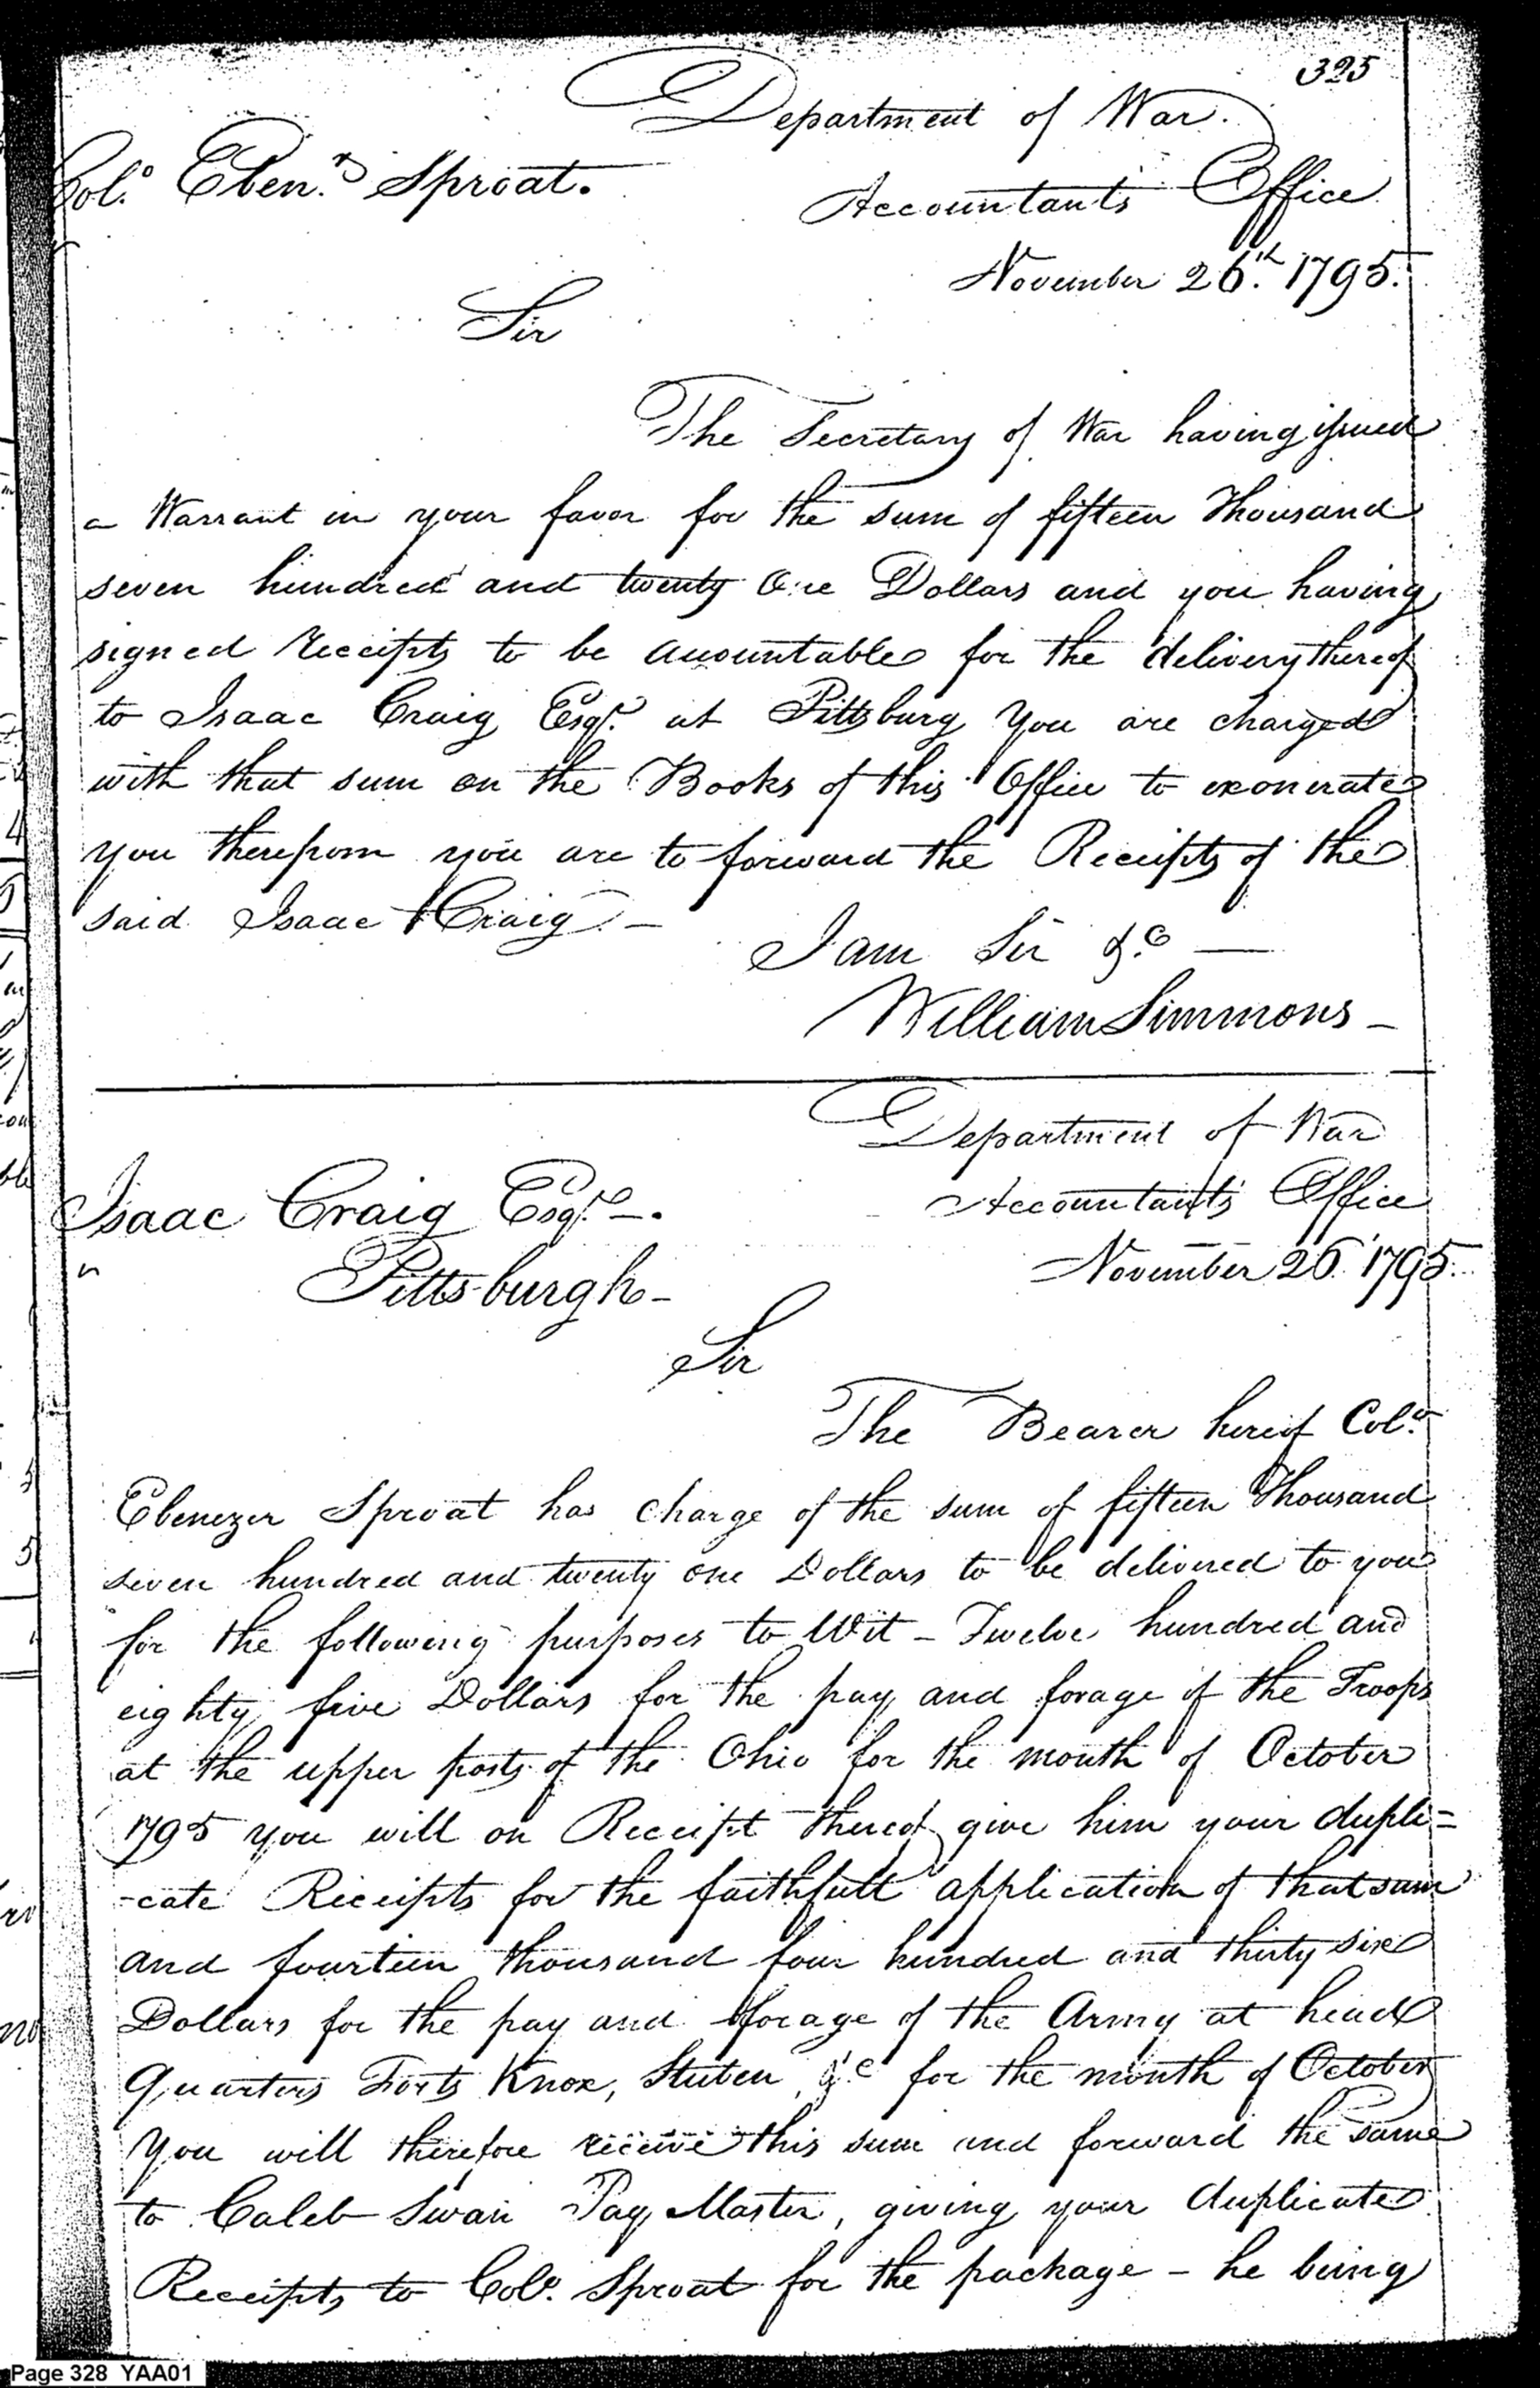 325
Department of War.
Col.º Eben.r Sproat.
Accountants Office
November 26.th 1795.
Sir
The Secretary of War having issued
a Warrant in your favor for the sum of fifteen Thousand
seven hundred and twenty One Dollars and you having
signed Receipts to be accountable for the delivery thereof
to Isaac Craig Esqr. at Pittsburg You are charged
with that sum on the Books of this Office to exonerate
you therefrom you are to forward the Receipts of the
said Isaac Craig. —
I am Sir &.c —
William Simmons —
Department of War
Accountants Office
Isaac Craig Esqr. —.
November 26 1795.
Pittsburgh —
Sir
The Bearer hereof Col.o
Ebenezer Sproat has charge of the sum of fifteen Thousand
seven hundred and twenty one Dollars to be delivered to you
for the following purposes to Wit — Twelve hundred and
eighty five Dollars for the pay and forage of the Troops
at the upper posts of the Ohio for the month of October
1795 you will on Receipt thereof give him your dupli=
-cate Receipts for the faithfull application of that sum
and fourteen thousand four hundred and thirty six
Dollars for the pay and forage of the Army at head
Quarters Forts Knox, Stuben &.c for the month of October
You will therefore receive this sum and forward the Same
to Caleb Swan Pay Master, giving your duplicate
Receipts to Colo. Sproat for the package — he being
Page 328 YAA01